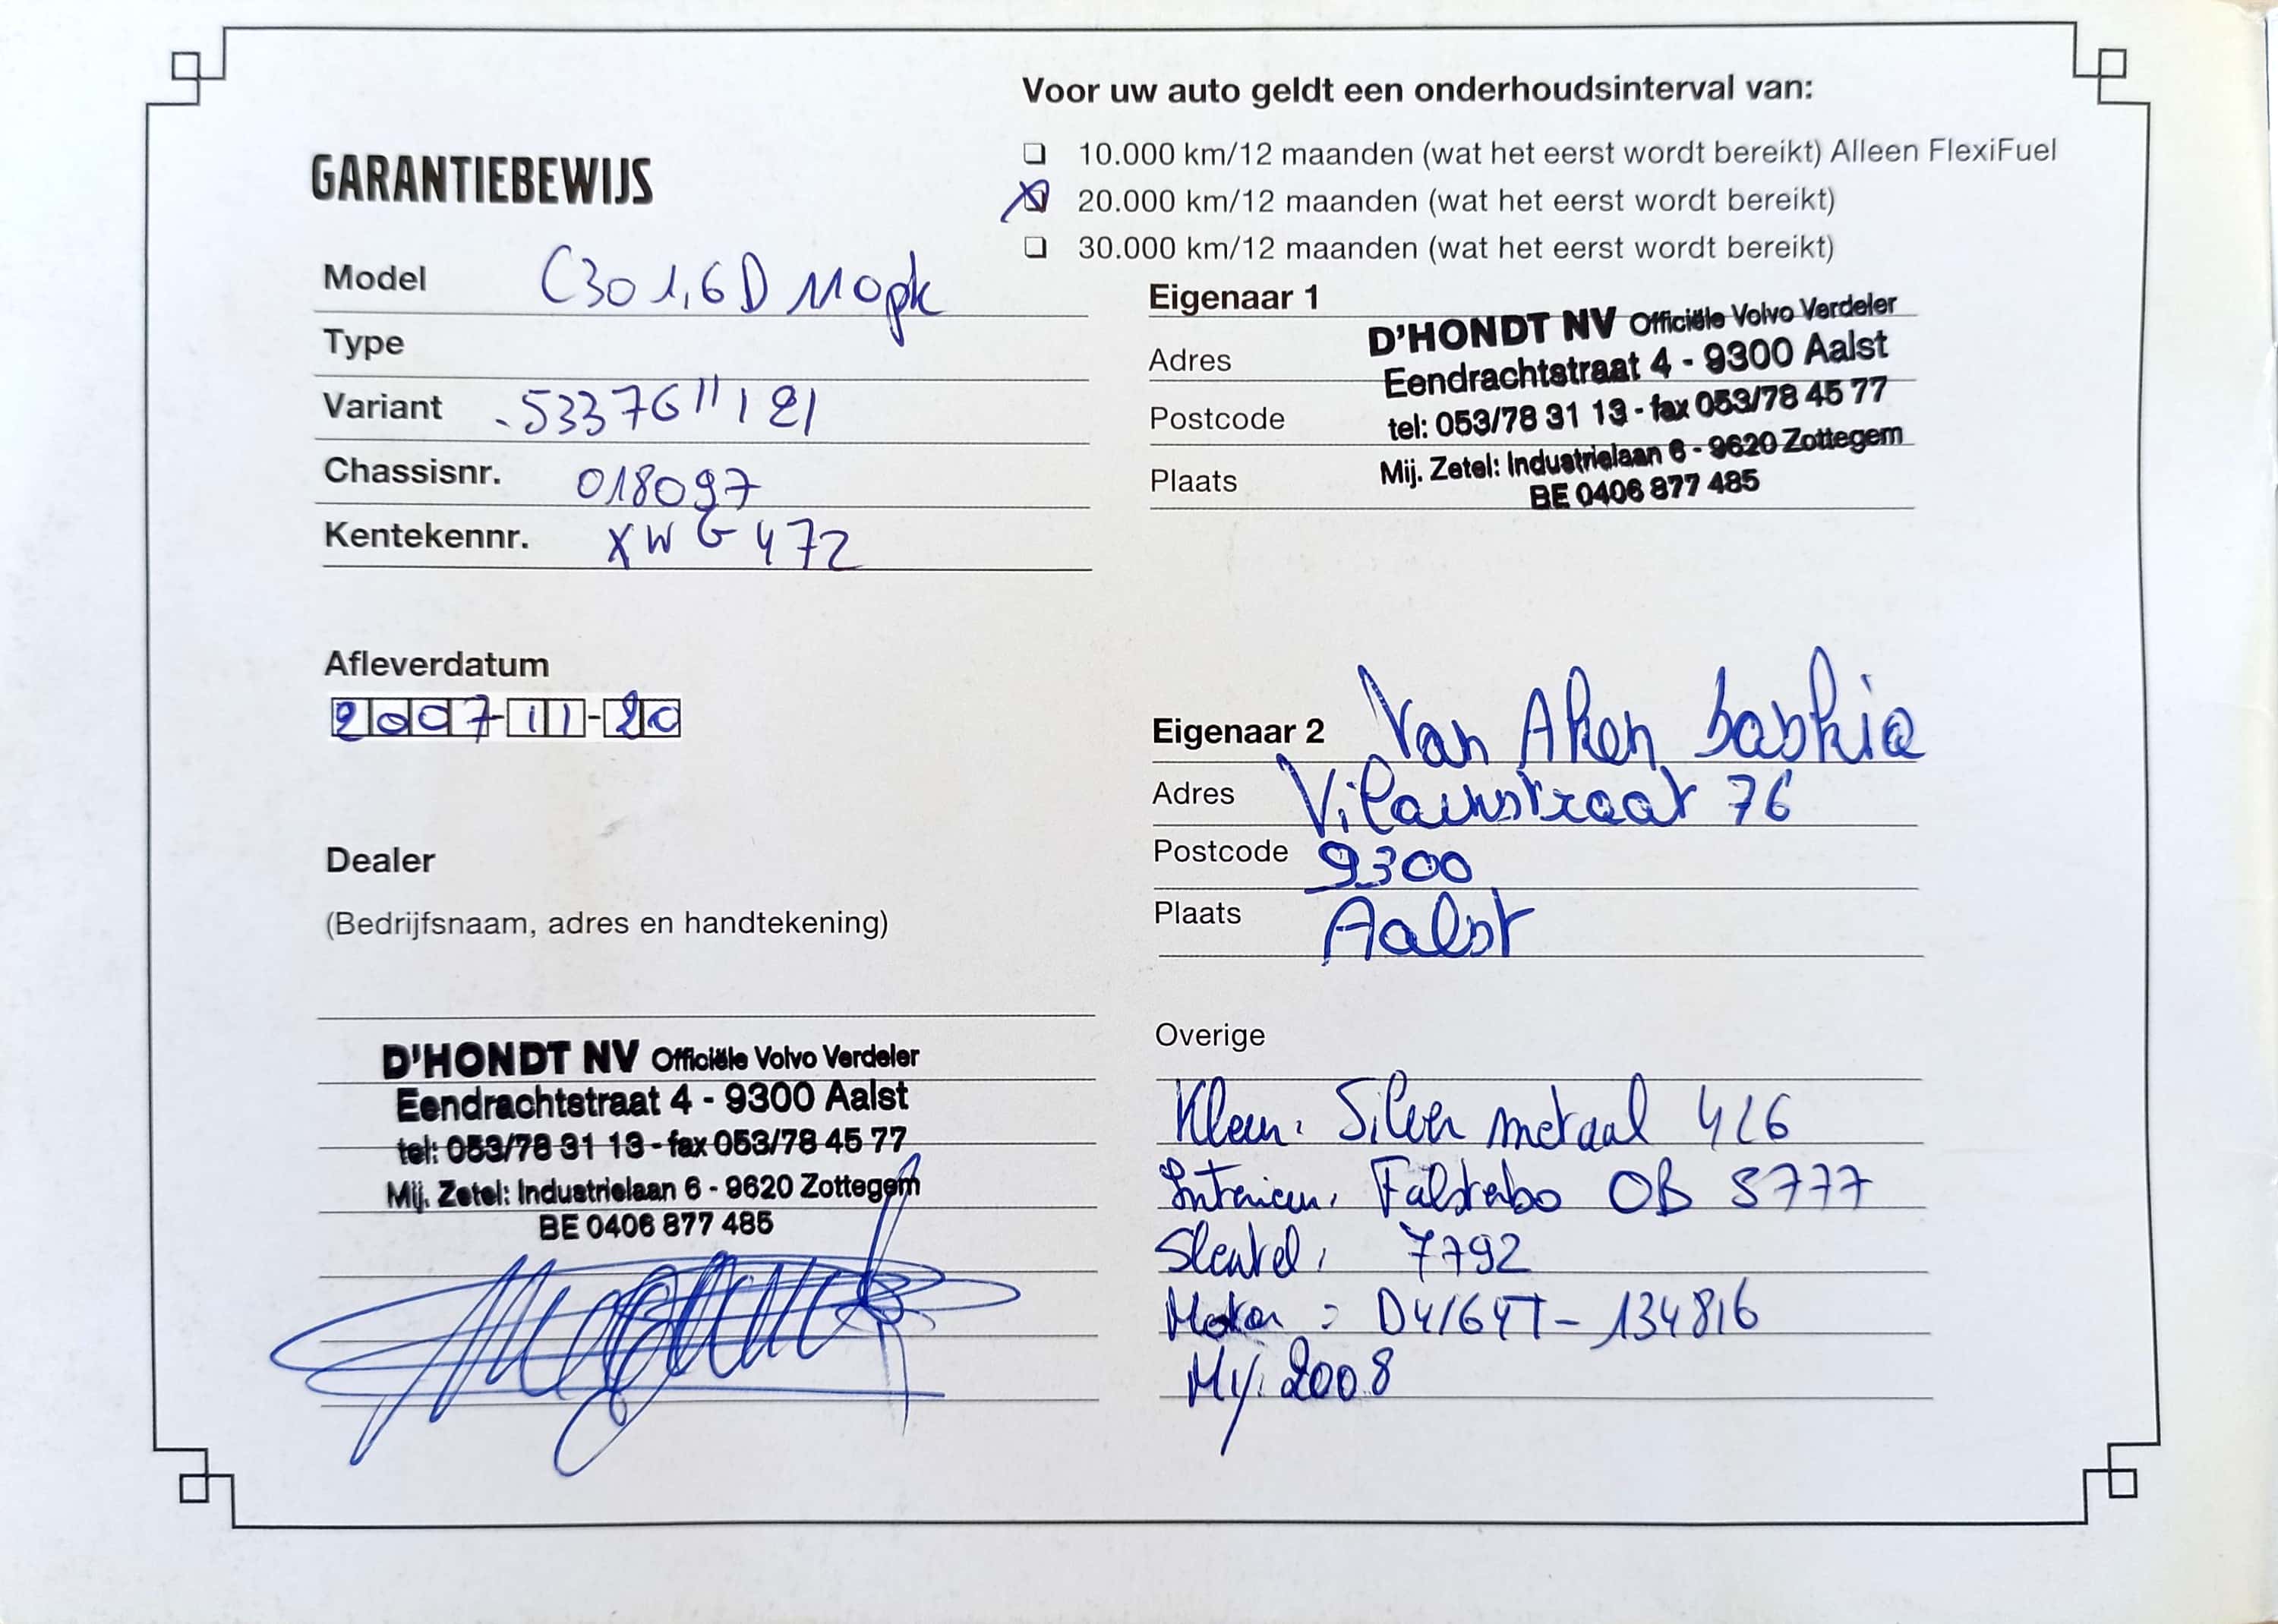 Voor uw auto geldt een onderhoudsinterval van:
10.000 km/12 maanden (wat het eerst wordt bereikt) Alleen FlexiFuel
20.000 km/12 maanden (wat het eerst wordt bereikt)
30.000 km/12 maanden (wat het eerst wordt bereikt)
GARANTIEBEWIJS
Model C30 1,6D 110pk
Type
Variant 53376111121
Chassisnr. 018097
Kentekennr. XWG472
Afleverdatum
2007-11-20
Dealer
(Bedrijfsnaam, adres en handtekening)
D'HONDT NV Officiële Volvo Verdeler
Eendrachtstraat 4 - 9300 Aalst
tel: 053/78 31 13 - fax 053/78 45 77
Mij. Zetel: Industrielaan 6 - 9620 Zottegem
BE 0406 877 485
Eigenaar 1
Adres
Postcode
Plaats
D'HONDT NV Officiële Volvo Verdeler
Eendrachtstraat 4 - 9300 Aalst
tel: 053/78 31 13 - fax 053/78 45 77
Mij. Zetel: Industrielaan 6 - 9620 Zottegem
BE 0406 877 485
Eigenaar 2 Van Aken Saskia
Adres 76
Postcode 9300
Plaats Aalst
Overige
Kleur: Silver metaal 426
Interieur: Falsterbo OB 5777
Sleutel: 7792
Motor: D4164T - 134816
My: 2008